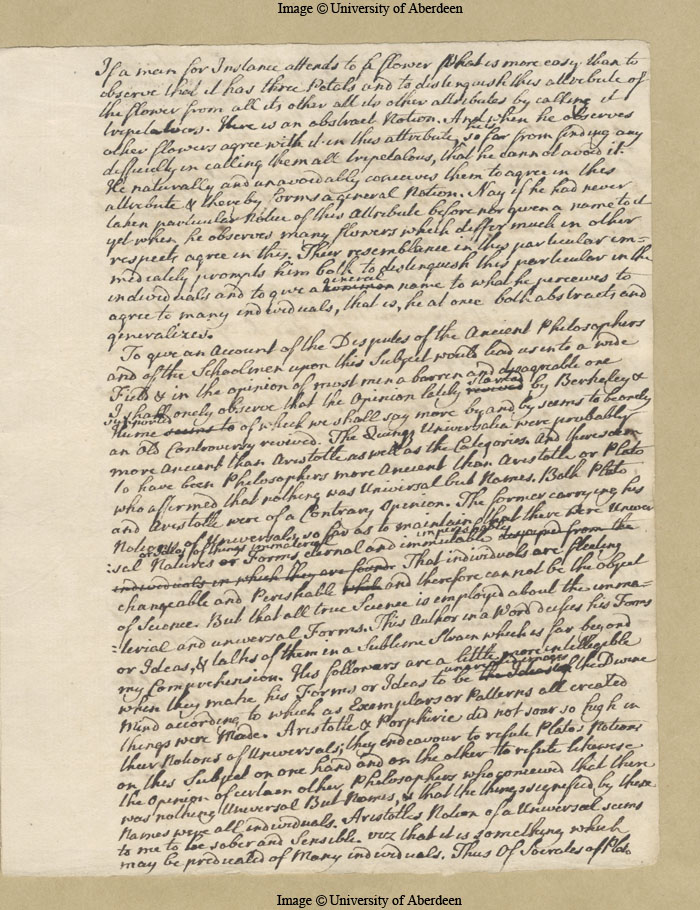 Image © University of Aberdeen
If a man for Instance attends to a flower What is more easy than to
observe that it has three Petals and to distinguish this attribute of
the flower from all its other all its other attributes by calling it
tripetalous. Here is an abstract Notion. And when he observes
other flowers agree with it in this attribute, he is so far from finding any
difficulty in calling them all tripetalous, that he cannot avoid it.
He naturally and unavoidably conceives them to agree in this
attribute & thereby forms a general Notion. Nay if he had never
taken particular Notice of this Attribute before nor given a name to it
yet when he observes many flowers which differ much in other
respects agree in this. Their resemblance in this particular im=
mediately prompts him both to distinguish this particular in the
general
individuals and to give a common name to what he perceives to
agree to many individuals, that is, he at once both abstracts and
generalizes.
To give an Account of the Disputes of the Ancient Philosophers
and of the Schoolmen upon this Subject would lead us into a wide
Field & in the opinion of most men a barren and disagreable one
started
I shall onely observe that the Opinion lately revived by Berkeley &
supported
Hume seems to of which we shall say more by and by seems to be onely
an Old Controversy revived. The Quinq Universalia were probably
more ancient than Aristotle as well as the Categories. And there seem
to have been Philosophers more Ancient than Aristotle or Plato
who affirmed that nothing was Universal but Names. Both Plato
and Aristotle were of a Contrary Opinion. The former carrying his
Notions of Universals, so far as to maintain that there were Univer
of things immaterial
:sal Natures or Forms eternal and immutable from the
individuals in which they are found. That individuals are fleeting
changeable and Perishable and therefore cannot be the object
of Science. But that all true Science is employed about the imma=
:terial and universal Forms. This Author in a Word deifies his Forms
or Ideas, & talks of them in a Sublime Strain which is far beyond
my Comprehension. His followers are a little more intelligible
when they make his Forms or Ideas to be the Ideas of the Divine
Mind according to which as Exemplars or Patterns all created
things were Made. Aristotle & Porphirie did not soar so high in
their Notions of Universals; they endeavour to refute Platos Notions
on this Subject on one hand and on the other to refute likewise
the Opinion of certain other Philosophers who conceived that there
was nothing Universal But Names, & that the things signified by these
Names were all individuals. Aristotles Notion of a Universal seems
to me to be sober and Sensible. viz that it is something which
may be predicated of Many individuals. Thus Of Socrates of Plato
Image © University of Aberdeen